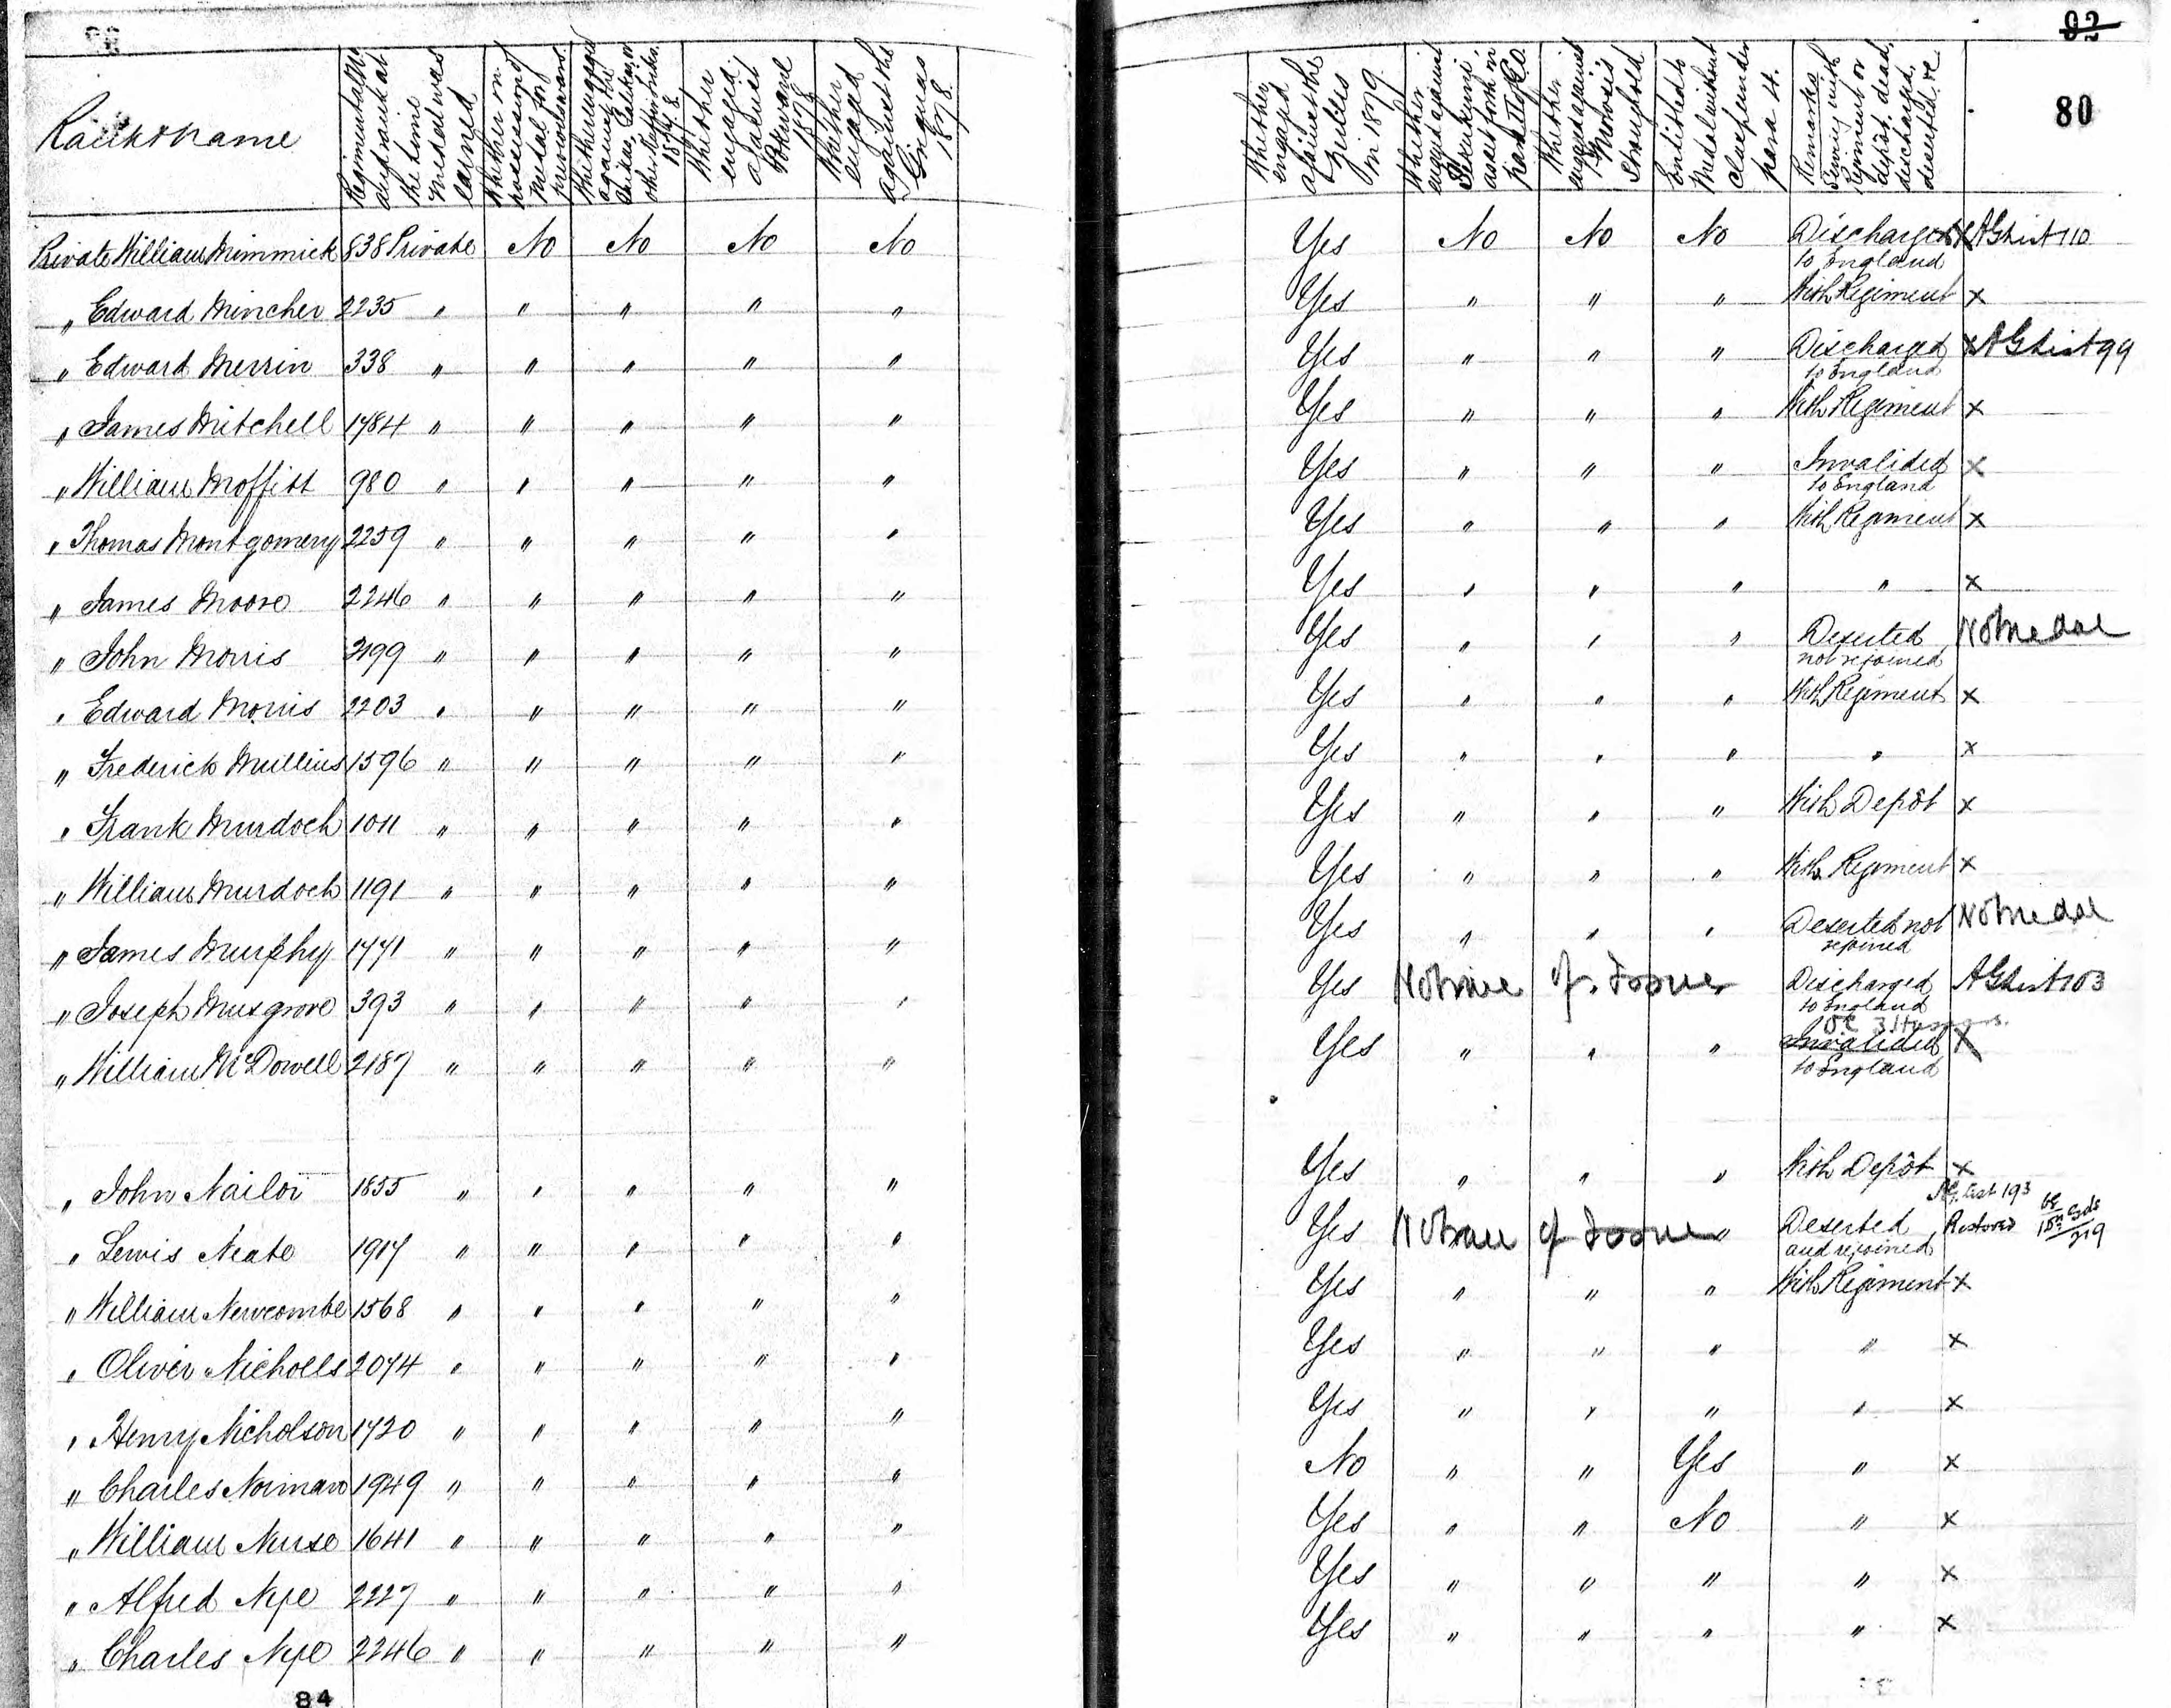 92
80
Rank & Name
Regimental No. and rank at the time medal was earned
Whether in possession of medal for previous wars
Whether engaged against the Galekas or other Kaffir tribes 1877-8
Whether engaged against Pokwane 1878
Whether engaged against the Griquas 1878
Whether engaged against the Zulus in 1879
Whether engaged against Sekukuni as set forth in para
Whether engaged against Moirosi's Stronghold
Entitled to Medal without Clasp under para 4.
Remarks Serving with Regiment or depôt, dead, discharged, deserted &c
Private William Mimmick 838 Private No No No No Yes No No No Discharged to England x AG List 110
" Edward Mincher 2235 " " " " " Yes " " " With Regiment x
" Edward Merrin 338 " " " " " Yes " " " Discharged to England x AG List 99
" James Mitchell 1784 " " " " " Yes " " " With Regiment x
" William Moffitt 980 " " " " " Yes " " " Invalided to England x
" Thomas Montgomery 2259 " " " " " Yes " " " With Regiment x
" James Moore 2246 " " " " " Yes " " " " x
" John Morris 2199 " " " " " Yes " " " Deserted not rejoined No medal
" Edward Morris 2203 " " " " " Yes " " " With Regiment x
" Frederick Mullins 1596 " " " " " Yes " " " " x
" Frank Murdoch 1011 " " " " " Yes " " " With Depôt x
" William Murdoch 1191 " " " " " Yes " " " With Regiment x
" James Murphy 1771 " " " " " Yes " " " Deserted not rejoined No medal
" Joseph Musgrove 393 " " " " " Yes No trace of issue Discharged to England AG List 103
" William McDowell 2187 " " " " " Yes " " " Invalided to England x
" John Nailor 1855 " " " " " Yes " " " With Depôt x
" Lewis Neate 1917 " " " " " Yes No trace of issue " Deserted and rejoined AG List 193 Restored
" William Newcombe 1568 " " " " " Yes " " " With Regiment x
" Oliver Nicholls 2074 " " " " " Yes " " " " x
" Henry Nicholson 1720 " " " " " Yes " " " " x
" Charles Norman 1949 " " " " " No " " Yes " x
" William Nurse 1641 " " " " " Yes " " No " x
" Alfred Nye 2227 " " " " " Yes " " " " x
" Charles Nye 2246 " " " " " Yes " " " " x
84